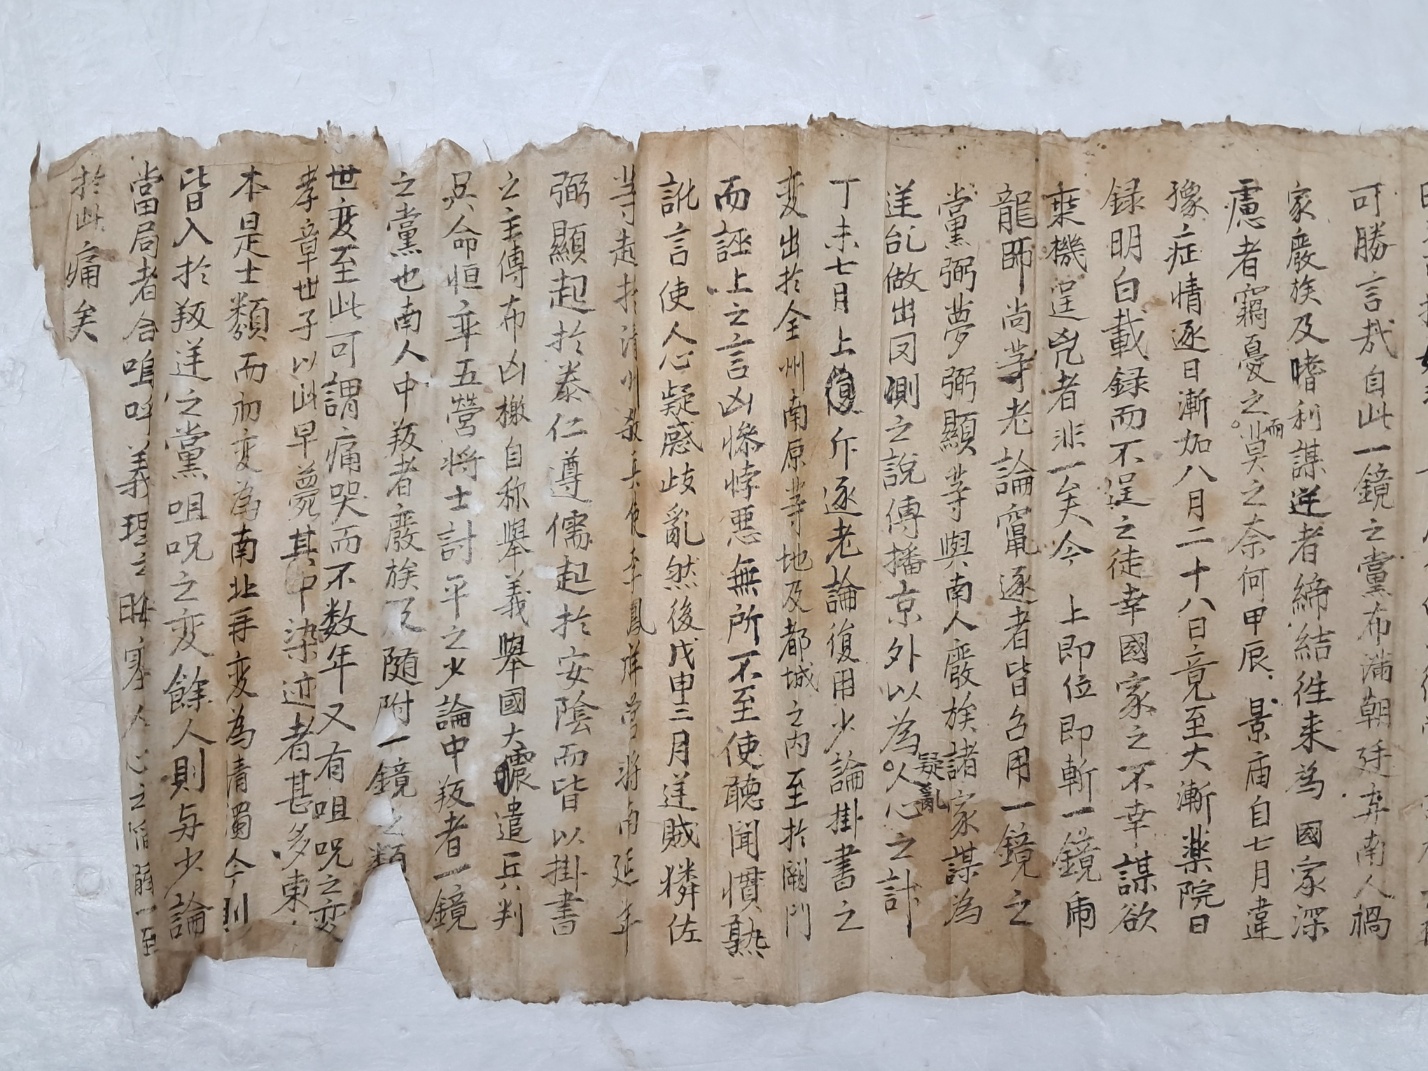 可勝言哉自此一鏡之黨布滿朝廷弃南人禍
家廢族及嗜利謀逆者締結徃来為 國家深
慮者竊憂之而莫之奈何甲辰 景庙自七月違
豫症情逐日漸加八月二十八日竟至大漸藥院日
録明白載録而不逞之徒幸國家之不幸謀欲
乗機逞兇者非一矣今 上即位即斬一鏡
龍師尚等老論竄逐者皆召用一鏡之
黨弼夢弼顯等與南人廢族諸家謀為
逆乱做出罔測之說傳播京外以為疑亂人心之計
丁未七月上復斥逐老論復用少論掛書之
変出於全州南原等地及都城之內至於闕門
而誣上之言凶慘悖惡無所不至使聽聞慣熟
訛言使人心疑惑歧亂然後戊申三月逆賊獜佐
等起於清州殺兵使李鳳祥营将南延年
弼顯起於泰仁遵儒起於安陰而皆以掛書
之主傳布凶檄自称舉義舉國大驚遣兵判
吳命恒率五營将士討平之少論中叛者一鏡
之黨也南人中叛者廢族及随附一鏡之類
世変至此可謂痛哭而不数年又有咀呪之変
孝章世子以此早薨其中染迹者甚多東
本是士類而初変為南北再変為清濁今則
皆入於叛逆之黨咀呪之变餘人則与少論
當局者合嗚呼義理之晦塞人心之陷一至
於此痛矣